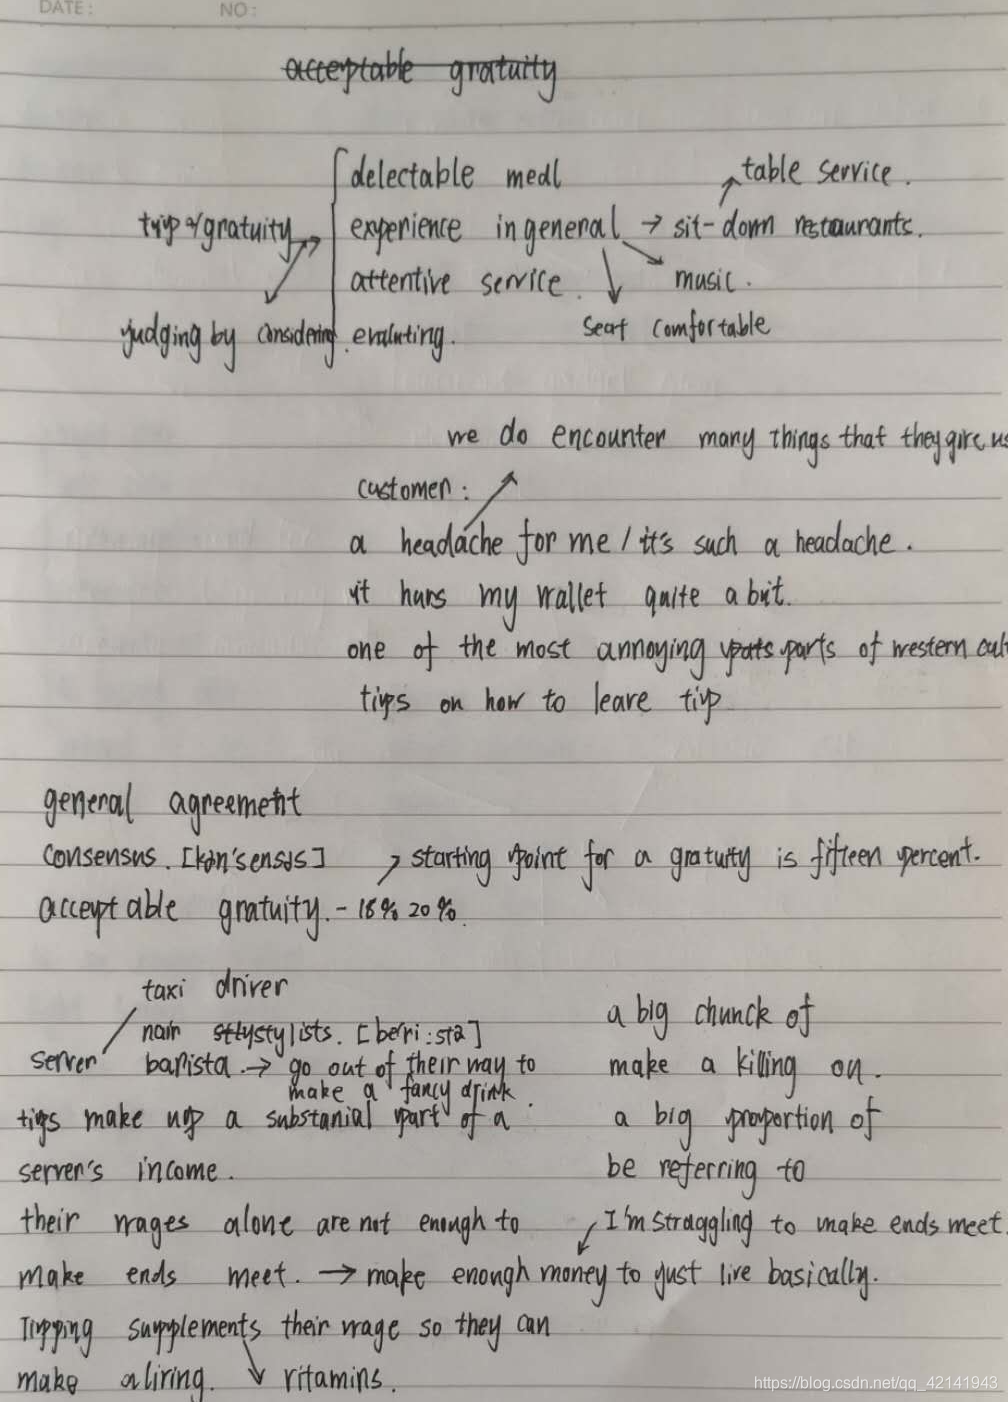 DATE: NO:
acceptable gratuity
delectable meal
table service.
tip of gratuity
experience in general → sit-down restaurants.
attentive service.
music.
seat comfortable
judging by considering. evaluating.
we do encounter many things that they give us
customen:
a headache for me / it's such a headache.
it hurs my wallet quite a bit.
one of the most annoying parts of western cul
tips on how to leave tip
general agreement
consensus. [kən'sensəs]
starting point for a gratuity is fifteen percent.
acceptable gratuity. - 18% 20%.
taxi driver
hair stylists. [bə'ri:stə]
server
barista. → go out of their way to
make a fancy drink.
tips make up a substanial part of a
server's income.
their wages alone are not enough to
make ends meet. → make enough money to just live basically.
Tipping supplements their wage so they can
make a living.
vitamins.
a big chunck of
make a killing on.
a big proportion of
be referring to
I'm straggling to make ends meet.
https://blog.csdn.net/qq_42141943